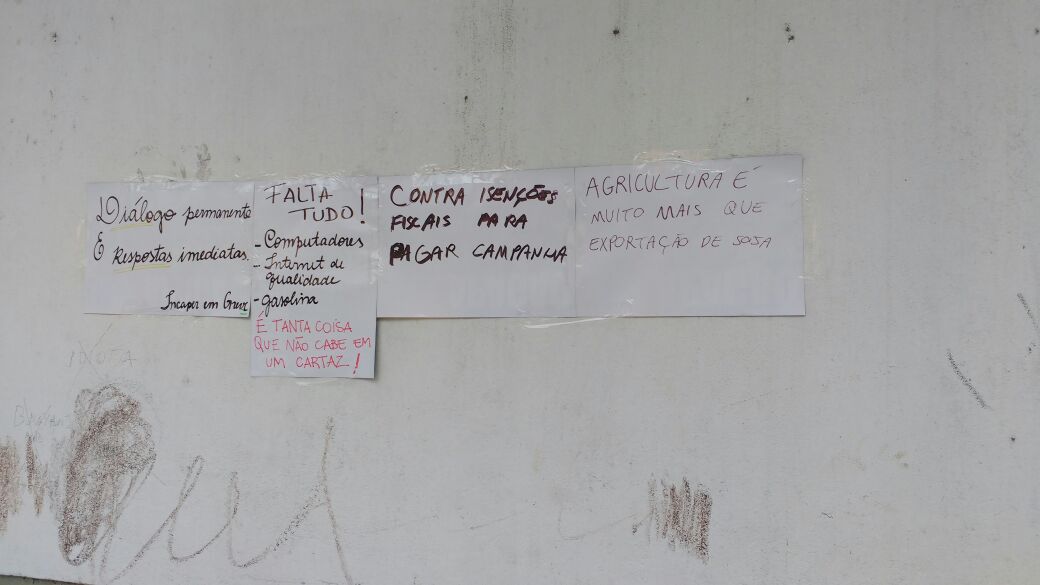 Diálogo permanente
E Respostas imediatas.
Incaper em Greve
FALTA
TUDO!
- Computadores
- Internet de
qualidade
- gasolina
É TANTA COISA
QUE NÃO CABE EM
UM CARTAZ!
CONTRA ISENÇÕES
FISCAIS PARA
PAGAR CAMPANHA
AGRICULTURA É
MUITO MAIS QUE
EXPORTAÇÃO DE SOJA